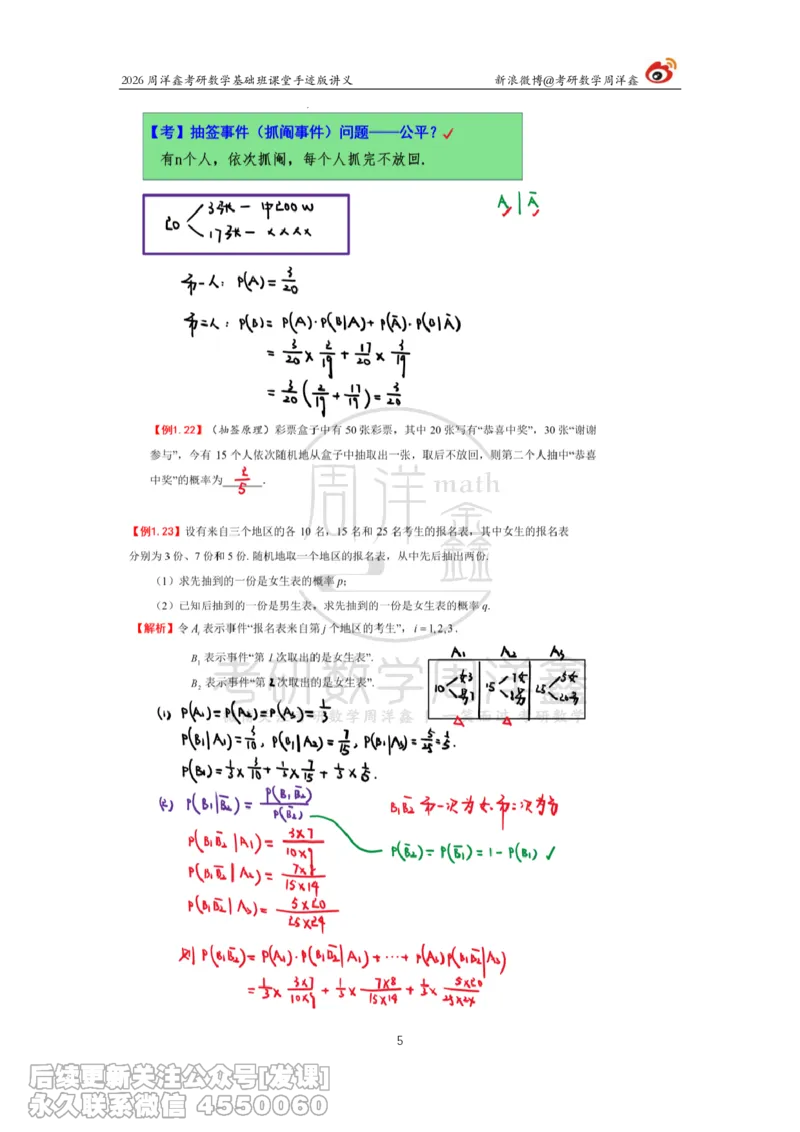 2026 周洋鑫考研数学基础班课堂手迹版讲义 新浪微博@考研数学周洋鑫
【考】抽签事件（抓阄事件）问题——公平？✓
有n个人，依次抓阄，每个人抓完不放回.
A | Ā
20
3张 — 中200W
17张 — ××××
第一人：P(A)=3/20
第二人：P(B)=P(A)·P(B|A)+P(Ā)·P(B|Ā)
=3/20×2/19+17/20×3/19
=3/20(2/19+17/19)=3/20
【例1.22】（抽签原理）彩票盒子中有 50 张彩票，其中 20 张写有“恭喜中奖”，30 张“谢谢
参与”，今有 15 个人依次随机地从盒子中抽取出一张，取后不放回，则第二个人抽中“恭喜
中奖”的概率为 2/5 .
周洋 math
考鑫
【例1.23】设有来自三个地区的各 10 名，15 名和 25 名考生的报名表，其中女生的报名表
分别为 3 份、7 份和 5 份. 随机地取一个地区的报名表，从中先后抽出两份.
（1）求先抽到的一份是女生表的概率 p；
（2）已知后抽到的一份是男生表，求先抽到的一份是女生表的概率 q.
【解析】令 Aᵢ 表示事件“报名表来自第 j 个地区的考生”，i=1,2,3.
B₁ 表示事件“第 1 次取出的是女生表”.
B₂ 表示事件“第 2 次取出的是女生表”.
考研数学周洋鑫
A₁ A₂ A₃
10 女3 男7 15 7女 8男 25 5女 20男
(1) P(A₁)=P(A₂)=P(A₃)=1/3
P(B₁|A₁)=3/10, P(B₁|A₂)=7/15, P(B₁|A₃)=5/25=1/5.
P(B₁)=1/3×3/10+1/3×7/15+1/3×1/5.
(2) P(B₁|B̄₂)=P(B₁B̄₂)/P(B̄₂)
B₁B̄₂ 第一次为女，第二次为男
P(B₁B̄₂|A₁)=3×7/10×9
P(B̄₂)=P(B̄₁)=1-P(B₁) ✓
P(B₁B̄₂|A₂)=7×8/15×14
P(B₁B̄₂|A₃)=5×20/25×24
则 P(B₁B̄₂)=P(A₁)·P(B₁B̄₂|A₁)+···+P(A₃)P(B₁B̄₂|A₃)
=1/3×3×7/10×9+1/3×7×8/15×14+1/3×5×20/25×24
5
后续更新关注公众号[发课]
永久联系微信 4550060